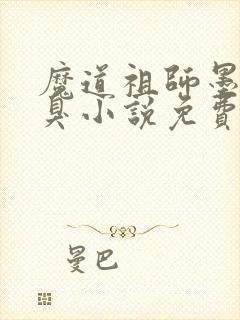 魔道祖師墨
臭小說免費
曼巴